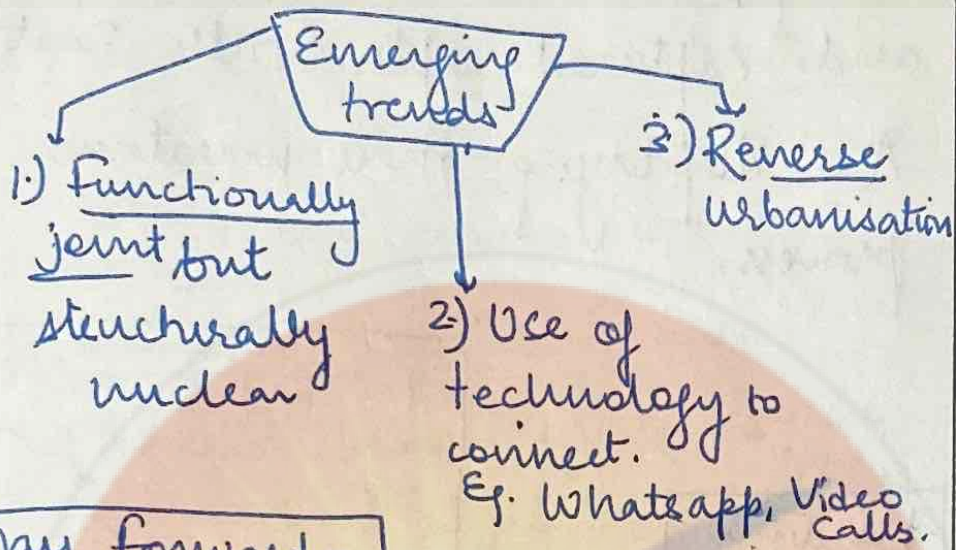 Emerging
trends
1.) Functionally
joint but
structurally
nuclear
2.) Use of
technology to
connect.
Eg. Whatsapp, Video
Calls.
3.) Reverse
Urbanisation
forward